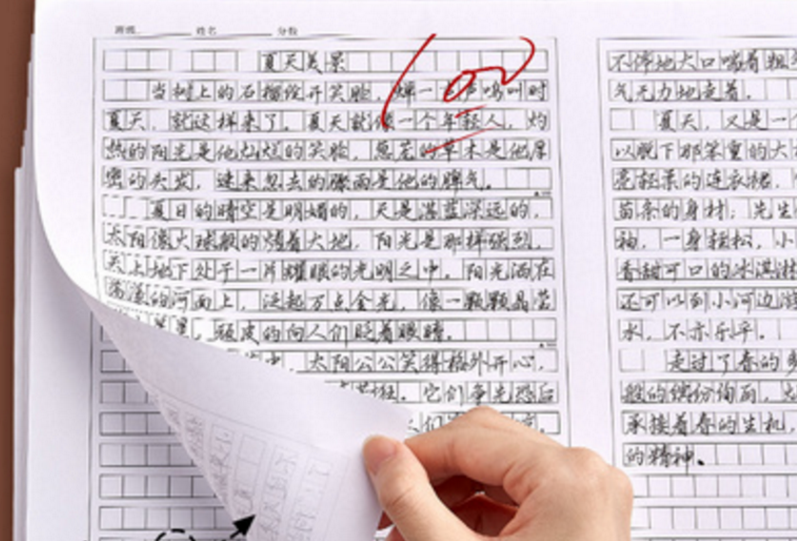 班级 姓名 分数
夏天美景
100
当树上的石榴绽开笑脸,蝉一声声鸣叫时
夏天,就这样来了。夏天就像一个年轻人,灼
热的阳光是他灿烂的笑脸,葱茏的草木是他厚
密的头发,速来忽去的骤雨是他的脾气。
夏日的晴空是明媚的,天是湛蓝深远的,
太阳像火球般的烤着大地,阳光是那样强烈,
天上地下处于一片耀眼的光明之中。阳光洒在
荡漾的河面上,泛起万点金光,像一颗颗晶莹
顽皮的向人们眨着眼睛。
太阳公公笑得格外开心,
它们争先恐后
们
不停地大口喘着粗
气无力地走着。
夏天,又是一个
以脱下那笨重的大
亮轻柔的连衣裙,
苗条的身材;先生
袖,一身轻松,小
香甜可口的冰淇淋
还可以到小河边游
水,不亦乐乎。
走过了春的
般的缤纷绚丽,
承接着春的生机,
的精神。